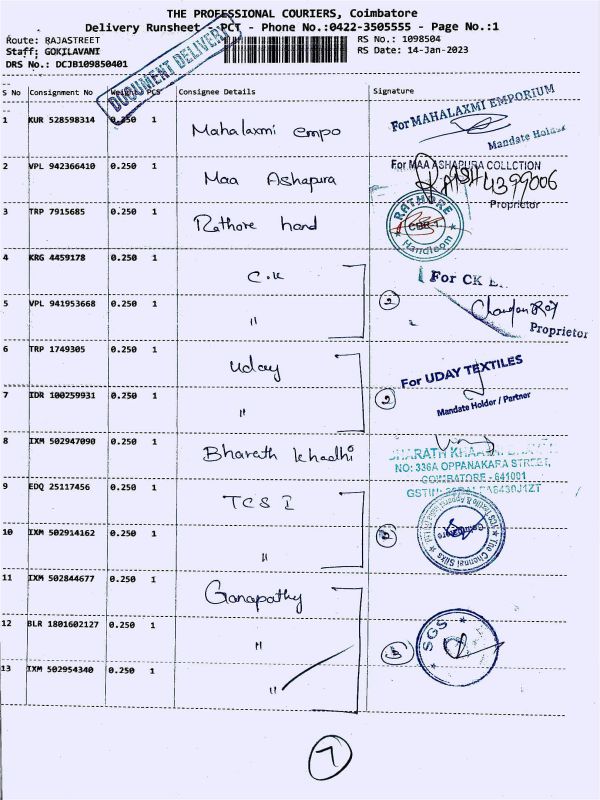 THE PROFESSIONAL COURIERS, Coimbatore
Delivery Runsheet - PCT - Phone No.:0422-3505555 - Page No.:1
Route: RAJASTREET RS No.: 1098504
Staff: GOKILAVANI RS Date: 14-Jan-2023
DRS No.: DCJB109850401
DOCUMENT DELIVERY
S No Consignment No Weight PCS Consignee Details Signature
1 KUR 528598314 0.250 1 Mahalaxmi empo
For MAHALAXMI EMPORIUM
Mandate Holder
2 VPL 942366410 0.250 1 Maa Ashapura
For MAA ASHAPURA COLLCTION
Proprietor
3 TRP 7915685 0.250 1 Rathore hand
RATHORE
CBE-1
Handloom
4 KRG 4459178 0.250 1 C.K
For CK
5 VPL 941953668 0.250 1 " 2
Proprietor
6 TRP 1749305 0.250 1 Uday
For UDAY TEXTILES
7 IDR 100259931 0.250 1 " 2
Mandate Holder / Partner
8 IXM 502947090 0.250 1 Bharath khadhi
NO: 336A OPPANAKARA STREET,
COIMBATORE - 641001
9 EDQ 25117456 0.250 1 TCS I
The Chennai Silks
10 IXM 502914162 0.250 1 " 2
11 IXM 502844677 0.250 1 Ganapathy
12 BLR 1801602127 0.250 1 " 3
SGS
13 IXM 502954340 0.250 1 "
7